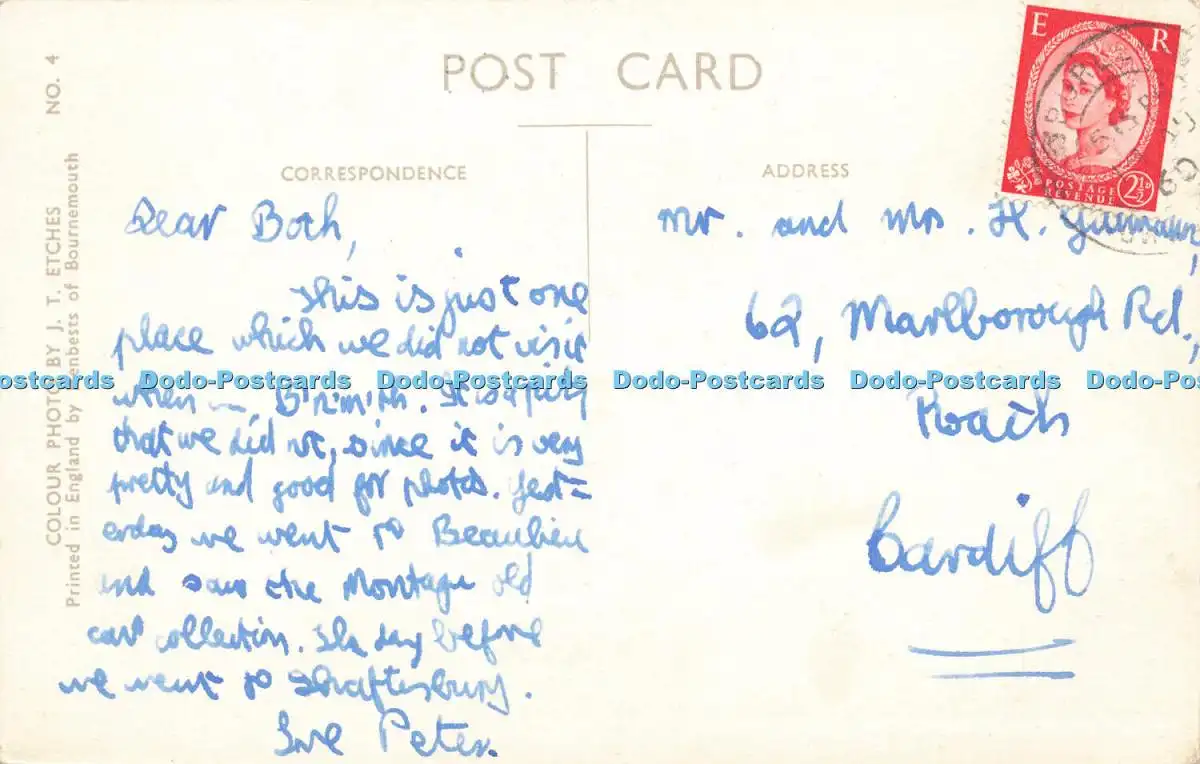 POST CARD
CORRESPONDENCE
Dear Both,
This is just one
place which we did not visit
when in B'n'm'th. It is a pity
that we did not, since it is very
pretty and good for photos. Yest=
erday we went to Beaulieu
and saw the Montagu old
car collection. The day before
we went to Shaftesbury.
Love Peter.
ADDRESS
Mr. and Mrs. H.
62, Marlborough Rd.,
Roath
Cardiff
E R
POSTAGE
REVENUE
2½D
60
COLOUR PHOTO BY J. T. ETCHES NO. 4
Printed in England by enbests of Bournemouth
Dodo-Postcards Dodo-Postcards Dodo-Postcards Dodo-Postcards Dodo-Postcards